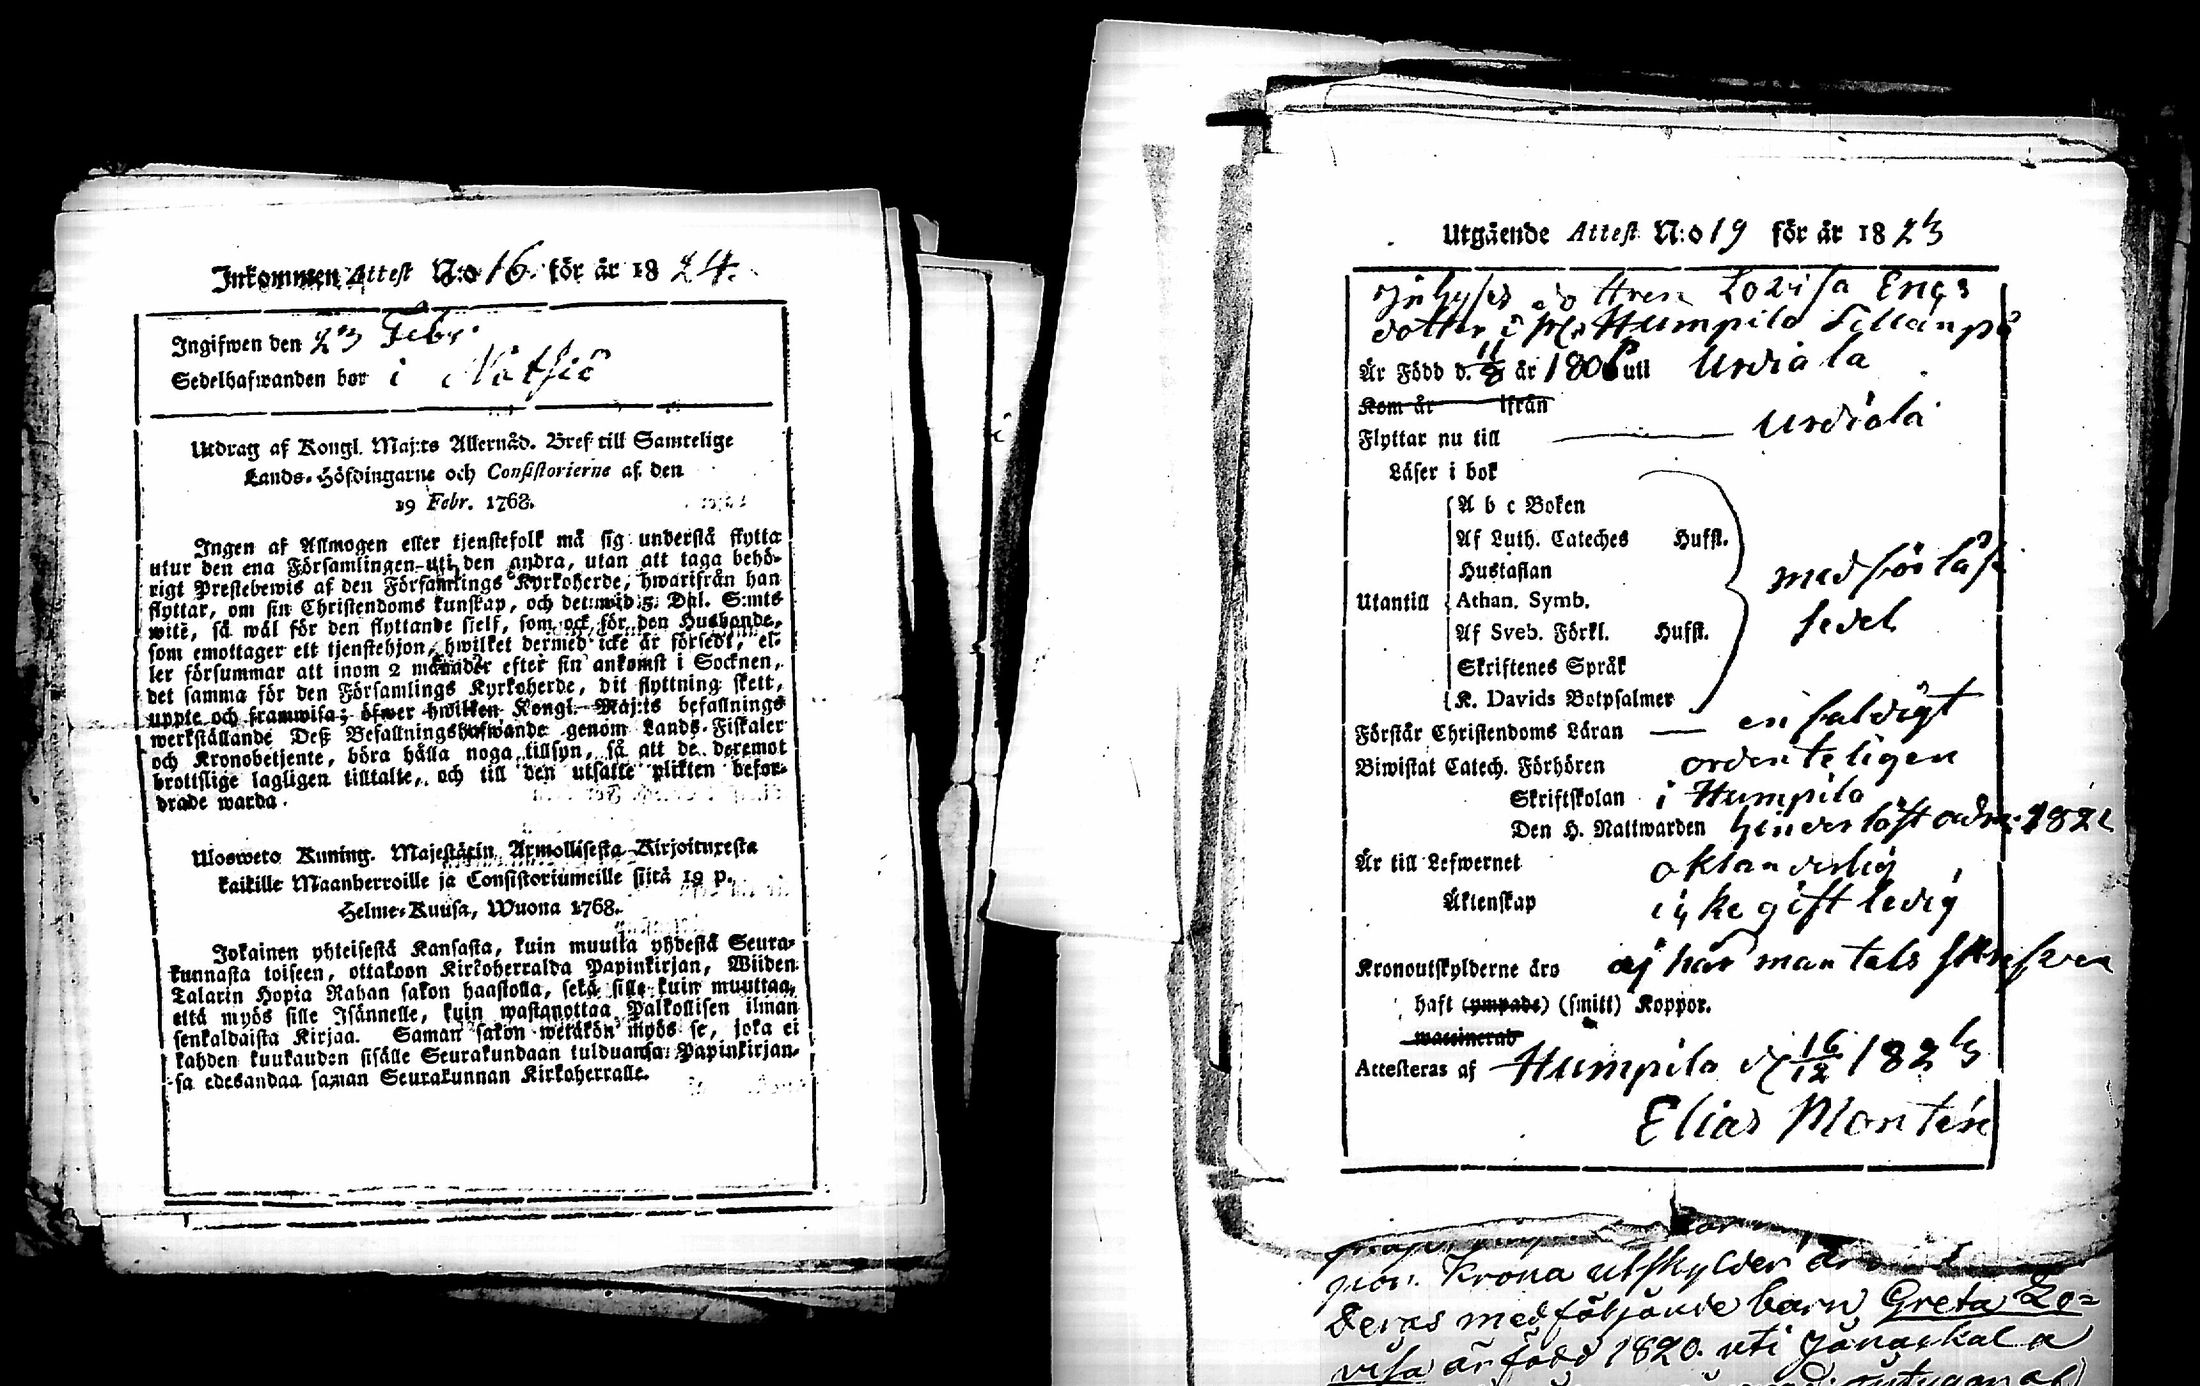 Inkommen Attest N:o 16. för år 1824.
Ingifwen den 23 Febr.
Sedelhafwanden bor i Nütsiö
Utdrag af Kongl. Maj:ts Allernåd. Bref till Samtelige
Lands-Höfdingarne och Consistorierne af den
19 Febr. 1768.
Ingen af Allmogen eller tjenstefolk må sig understå flytta
utur den ena Församlingen uti den andra, utan att taga behö-
rigt Prestebewis af den Församlings Kyrkoherde, hwarifrån han
flyttar, om sin Christendoms kunskap, och det wid 5 Dal. S:mts
wite, så wäl för den flyttande sjelf, som ock för den Husbonde,
som emottager ett tjenstehjon, hwilket dermed icke är försedt, el-
ler försummar att inom 2 månader efter sin ankomst i Socknen,
det samma för den Församlings Kyrkoherde, dit flyttning skett,
uppte och framwisa; öfwer hwilken Kongl. Maj:ts befallnings
werkställande Deß Befallningshafwande genom Lands-Fiskaler
och Kronobetjente, böra hålla noga tillsyn, så att de deremot
brottslige lagligen tilltalte, och till den utsatte plikten befor-
drade warda.
Ulosweto Kuning. Majestätin Armollisesta Kirjoituxesta
kaikille Maanherroille ja Consistoriumeille siitä 19 p.
Helme-Kuusa, Wuona 1768.
Jokainen yhteisestä Kansasta, kuin muutta yhdestä Seura-
kunnasta toiseen, ottakoon Kirkoherralda Papinkirjan, Wiiden
Talarin Hopia Rahan sakon haastolla, sekä sille kuin muuttaa,
että myös sille Isännelle, kuin wastanottaa Palkollisen ilman
senkaldaista Kirjaa. Saman sakon wetäkön myös se, joka ei
kahden kuukauden sisälle Seurakundaan tulduansa Papinkirjan-
sa edesandaa saman Seurakunnan Kirkoherralle.
Utgående Attest N:o 19 för år 1823
Inhyses dottren Lovisa Engs
dotter i Humpila Sillanpä
Är Född d. 11/8 år 1806 uti Urdiala
Kom år ifrån
Flyttar nu till Urdiala
Läser i bok
A b c Boken
Af Luth. Cateches Husst.
Hustaflan
Utantill Athan. Symb.
Af Sveb. Förkl. Husst.
Skriftenes Språk
K. Davids Botpsalmer
med förlåf
sedel
Förstår Christendoms Läran enfaldigt
Biwistat Catech. Förhören ordenteligen
Skriftskolan i Humpila
Den H. Nattwarden adm. 1822
Är till Lefwernet oklanderlig
Äktenskap icke gift ledig
Kronoutskylderne äro ej här mantals skrefven
haft (ympade) (smitt) Koppor.
waccinerad
Attesteras af Humpila d 16/12 1823
Elias Montén
por. Krona utskylder äro
Deras medföljande barn Greta Lo=
visa är född 1820. uti Janackala